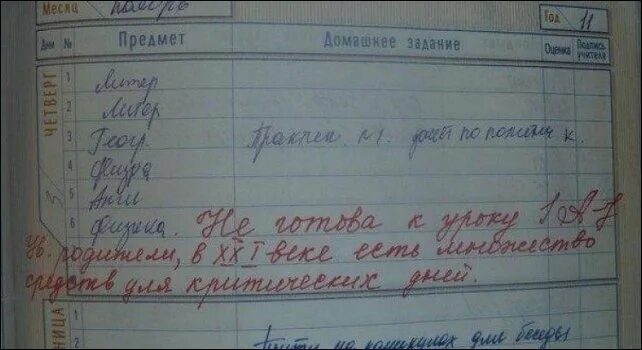 Месяц ноябрь Год 11
Дни № Предмет Домашнее задание Оценка Подпись учителя
ЧЕТВЕРГ 3
1 Литер
2 Литер
3 Геогр. Практич. №1.
4 Физра
5 Англ
6 Физика. Не готова к уроку
Ув. родители, в XXI веке есть множество
средств для критических дней.
1
2 на каникулах для беседы